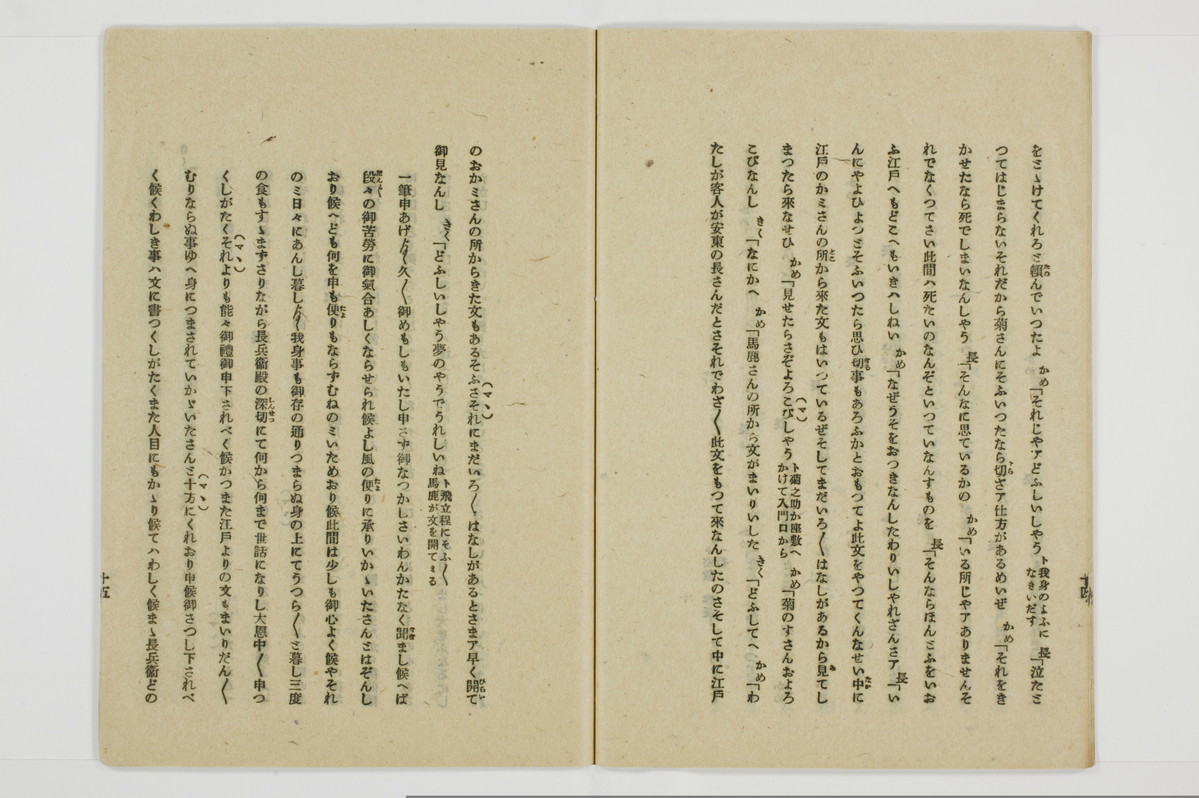 をミゝけてくれろミ頼んでいつたよ かめ「それじやアどふしいしやう ト我身のよふになきいだす 長「泣たミ
つてはじまらないそれだから菊さんにそふいつたなら切ざア仕方があるめいぜ かめ「それをき
かせたなら死でしまいなんしやう 長「そんなに思ているかの かめ「いる所じやアありませんそ
れでなくつてさい此間ハ死たいのなんぞといつていなんすものを 長「そんならほんミふをいお
ふ江戸へもどこへもいきハしねい かめ「なぜうそをおつきなんしたわりいしやれざんさア 長「い
んにやよひよつミそふいつたら思ひ切事もあろふかとおもつてよ此文をやつてくんなせい中に
江戸のかミさんの所から來た文もはいつているぜそしてまだいろ〳〵はなしがあるから見てし
まつたら來なせひ かめ「見せたらさぞよろこびしやう ト菊之助か座敷へかけて入門口から かめ「菊のすさんおよろ
こびなんし きく「なにかへ かめ「馬鹿さんの所から文がまいりいした きく「どふしてへ かめ「わ
たしが客人が安東の長さんだとさそれでわざ〳〵此文をもつて來なんしたのさそして中に江戸
十四
のおかミさんの所からきた文もあるそふさそれにまだいろ〳〵はなしがあるとさまア早く開て
御見なんし きく「どふしいしやう夢のやうでうれしいね ト飛立程にそふ〳〵馬鹿が文を開てミる
一筆申あげ久〳〵御めもしもいたし申さず御なつかしさいわんかたなく聞まし候へば
段々の御苦勞に御氣合あしくならせられ候よし風の便りに承りいかゝいたさんミはぞんし
おり候へども何を申も便りもならずむねのミいためおり候此間は少しも御心よく候やそれ
のミ日々にあんし暮し我身事も御存の通りつまらぬ身の上にてうつら〳〵ミ暮し三度
の食もすゝまずさりながら長兵衞殿の深切にて何から何まで世話になりし大恩中〳〵申つ
くしがたくそれよりも能々御禮御申下されべく候かつまた江戸よりの文もまいりだん〳〵
むりならぬ事ゆへ身につまされていかゞいたさんミ十方にくれおり申候御さつし下されべ
く候くわしき事ハ文に書つくしがたくまた人目にもかゝり候てハわしく候まゝ長兵衞どの
十五